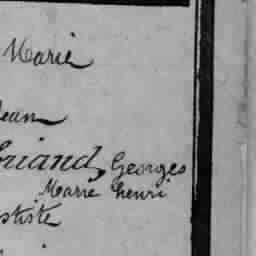 Marie
Jean
riand, Georges
Marie henri
ptiste